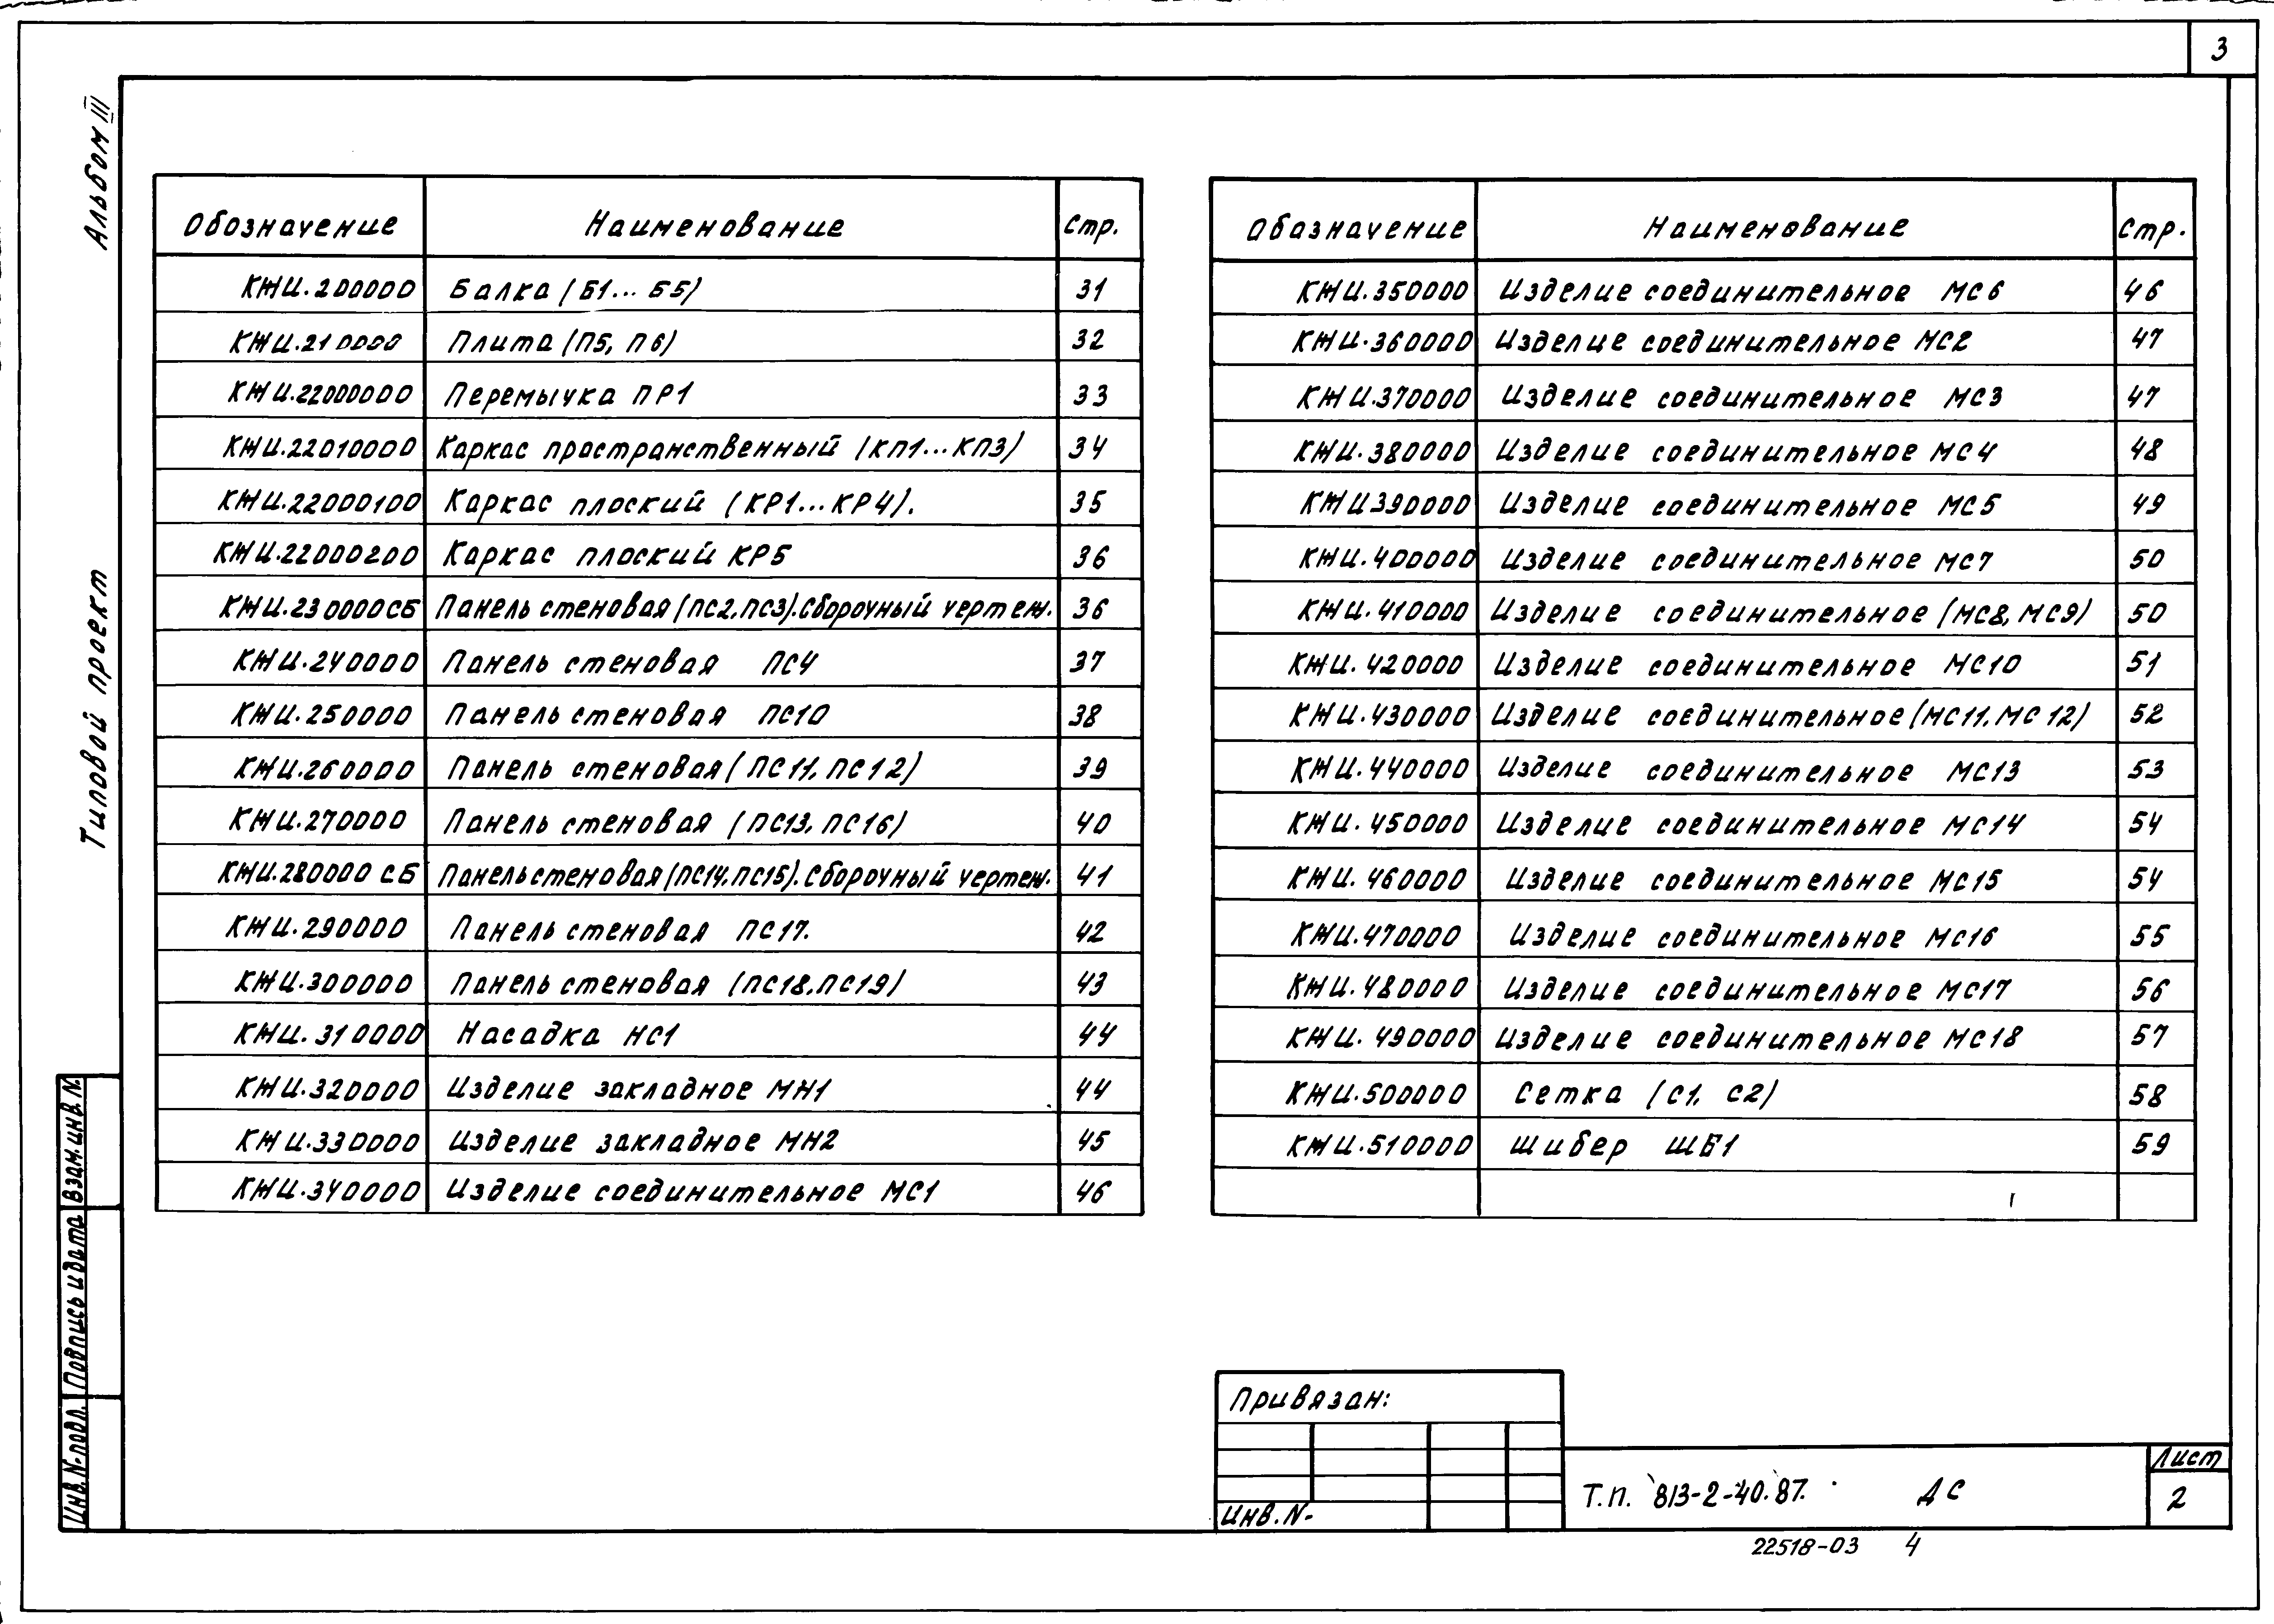 3
Альбом III
Типовой проект
Обозначение Наименование Стр.
КЖИ.200000 Балка (Б1...Б5) 31
КЖИ.210000 Плита (П5, П6) 32
КЖИ.22000000 Перемычка ПР1 33
КЖИ.22010000 Каркас пространственный (КП1...КП3) 34
КЖИ.22000100 Каркас плоский (КР1...КР4). 35
КЖИ.22000200 Каркас плоский КР5 36
КЖИ.230000СБ Панель стеновая (ПС2, ПС3). Сборочный чертеж. 36
КЖИ.240000 Панель стеновая ПС4 37
КЖИ.250000 Панель стеновая ПС10 38
КЖИ.260000 Панель стеновая (ПС11, ПС12) 39
КЖИ.270000 Панель стеновая (ПС13, ПС16) 40
КЖИ.280000 СБ Панель стеновая (ПС14, ПС15). Сборочный чертеж. 41
КЖИ.290000 Панель стеновая ПС17. 42
КЖИ.300000 Панель стеновая (ПС18, ПС19) 43
КЖИ.310000 Насадка НС1 44
КЖИ.320000 Изделие закладное МН1 44
КЖИ.330000 Изделие закладное МН2 45
КЖИ.340000 Изделие соединительное МС1 46
Обозначение Наименование Стр.
КЖИ.350000 Изделие соединительное МС6 46
КЖИ.360000 Изделие соединительное МС2 47
КЖИ.370000 Изделие соединительное МС3 47
КЖИ.380000 Изделие соединительное МС4 48
КЖИ390000 Изделие соединительное МС5 49
КЖИ.400000 Изделие соединительное МС7 50
КЖИ.410000 Изделие соединительное (МС8, МС9) 50
КЖИ.420000 Изделие соединительное МС10 51
КЖИ.430000 Изделие соединительное (МС11, МС12) 52
КЖИ.440000 Изделие соединительное МС13 53
КЖИ.450000 Изделие соединительное МС14 54
КЖИ.460000 Изделие соединительное МС15 54
КЖИ.470000 Изделие соединительное МС16 55
КЖИ.480000 Изделие соединительное МС17 56
КЖИ.490000 Изделие соединительное МС18 57
КЖИ.500000 Сетка (С1, С2) 58
КЖИ.510000 Шибер ШБ1 59
Взам.инв.N
Подпись и дата
Инв.N-подл.
Привязан:
Инв.N-
Т.п. 813-2-40.87. ДС
Лист
2
22518-03 4